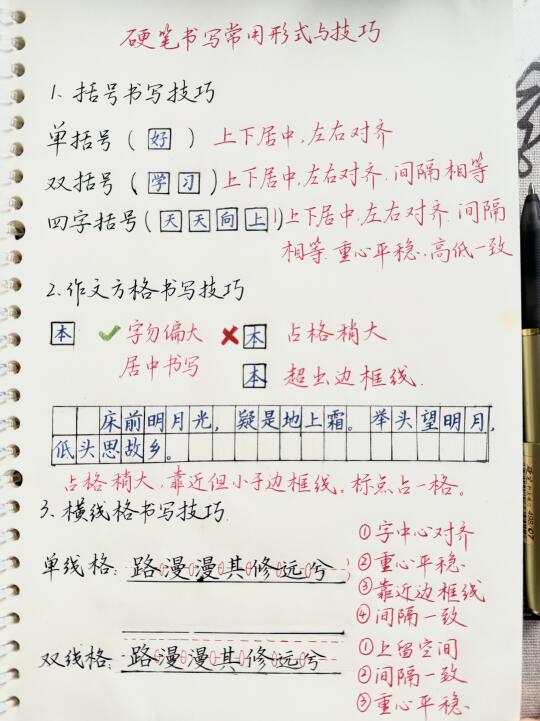 硬笔书写常用形式与技巧
1.括号书写技巧
单括号(好) 上下居中,左右对齐
双括号(学习)上下居中,左右对齐.间隔相等
四字括号(天天向上)上下居中,左右对齐.间隔
相等.重心平稳.高低一致
2.作文方格书写技巧
本 ✓字勿偏大 ✗本 占格稍大
居中书写 本 超出边框线.
床前明月光,疑是地上霜。举头望明月,
低头思故乡。
占格稍大,靠近但小于边框线。标点占一格。
3.横线格书写技巧
①字中心对齐
单线格:路漫漫其修远兮 ②重心平稳
③靠近边框线
④间隔一致
①上留空间
双线格:路漫漫其修远兮 ②间隔一致
③重心平稳